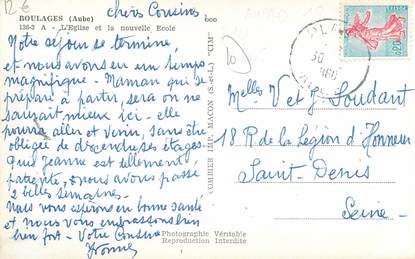 12-€
BOULAGES (Aube)
136-3 A - L'Eglise et la nouvelle Ecole
chères Cousines
Notre séjour se termine,
et nous avons eu un temps
magnifique - Maman qui se
prépare à partir, sera on ne
saurait mieux ici - elle
pourra aller et venir, sans être
obligée de descendre étages
que Jeanne est tellement
patiente, nous avons passé
2 belles semaines.
Nous vous espérons en bonne santé
et nous vous embrassons bien
bien fort - Votre Cousine
Yvonne
Photographie Véritable
Reproduction Interdite
COMBIER IMP. MACON (S.-et-L.) "CIM"
Melles V et J Soudant
18 R de la Légion d'Honneur
Saint-Denis
Seine